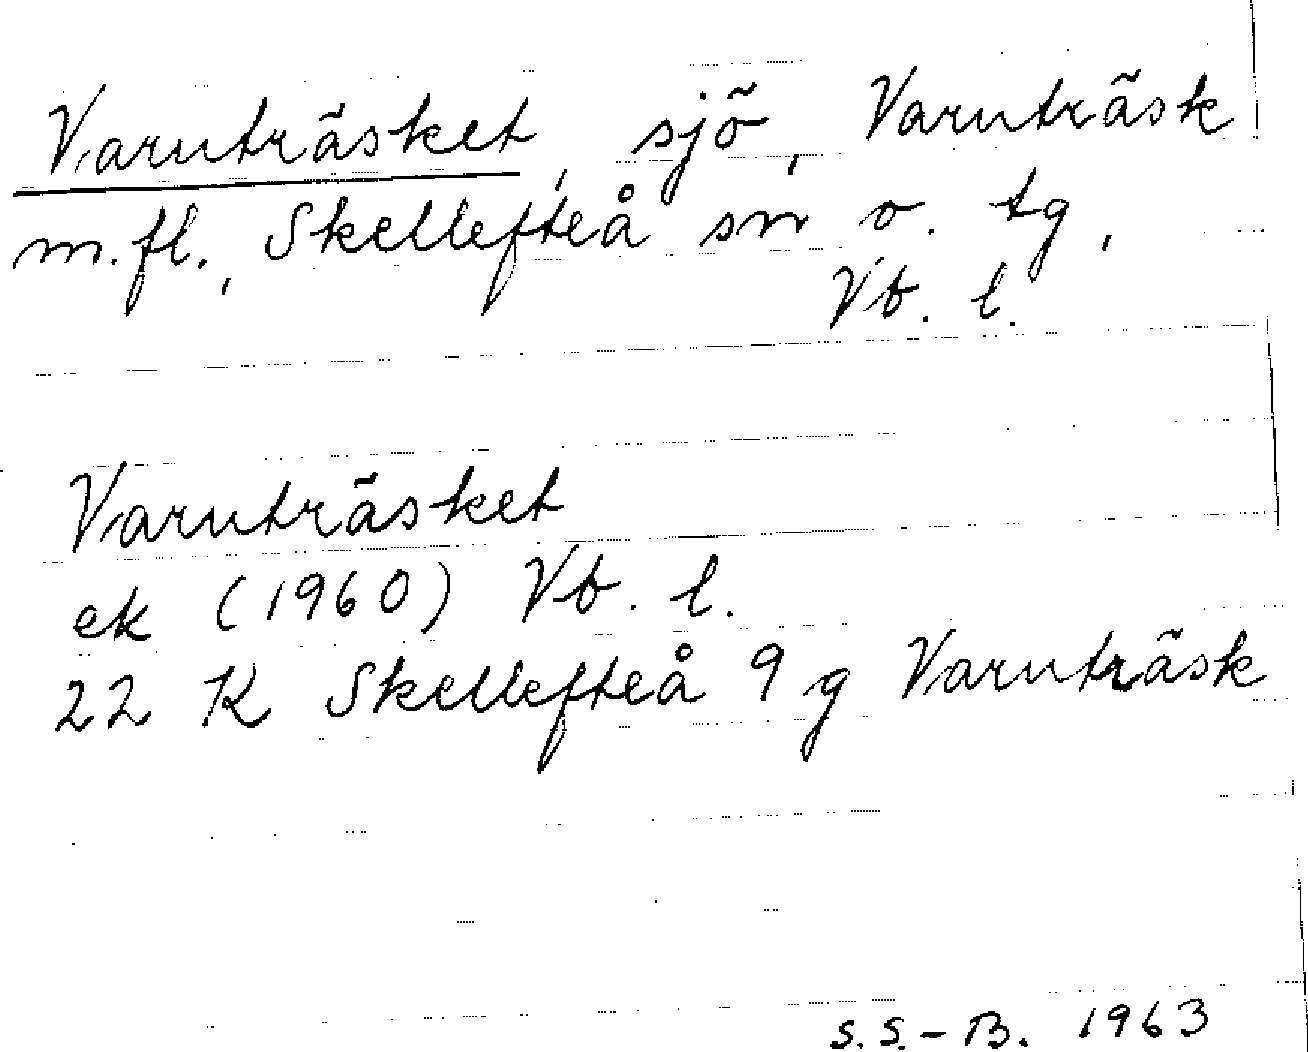 Varuträsket, sjö, Varuträsk
m.fl., Skellefteå sn o. tg,
Vb. l.
Varuträsket
ek (1960) Vb. l.
22 K Skellefteå 9 g Varuträsk
S.S.-B. 1963